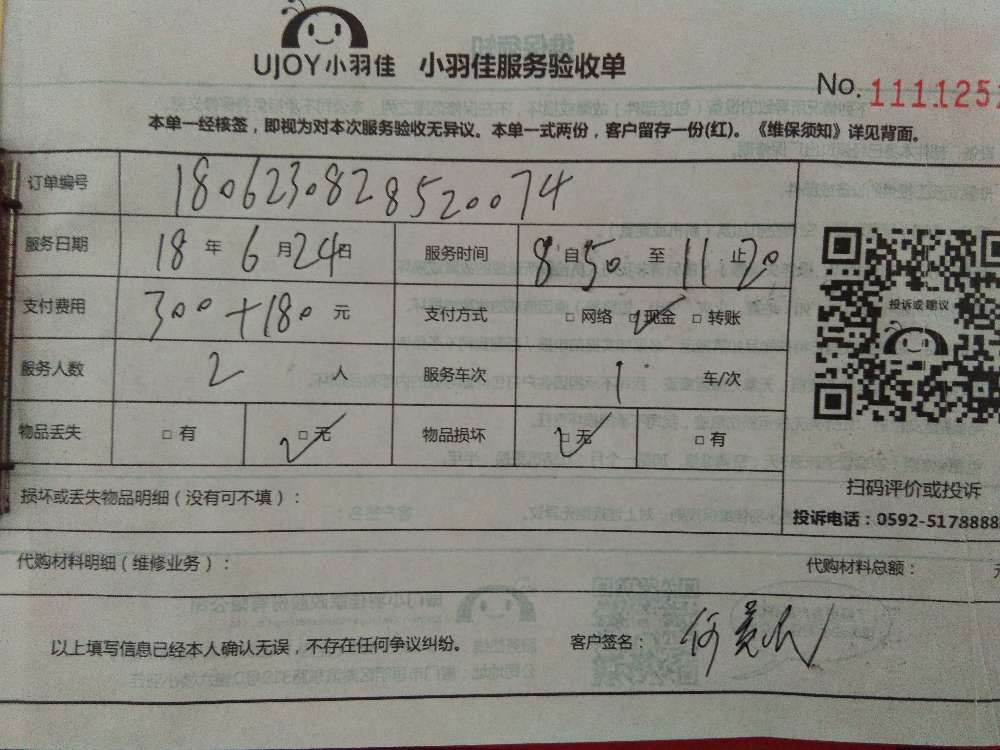 UJOY小羽佳 小羽佳服务验收单
No. 1111125
本单一经核签，即视为对本次服务验收无异议。本单一式两份，客户留存一份(红)。《维保须知》详见背面。
订单编号 1806230828520074
服务日期 18 年 6 月 24 日 服务时间 8 自 50 至 11 止 20
支付费用 300+180 元 支付方式 □ 网络 □ 现金 □ 转账
服务人数 2 人 服务车次 1 车/次
物品丢失 □ 有 □ 无 物品损坏 □ 无 □ 有
投诉或建议
扫码评价或投诉
损坏或丢失物品明细（没有可不填）：
投诉电话：0592-5178888
代购材料明细（维修业务）： 代购材料总额：
以上填写信息已经本人确认无误，不存在任何争议纠纷。 客户签名：